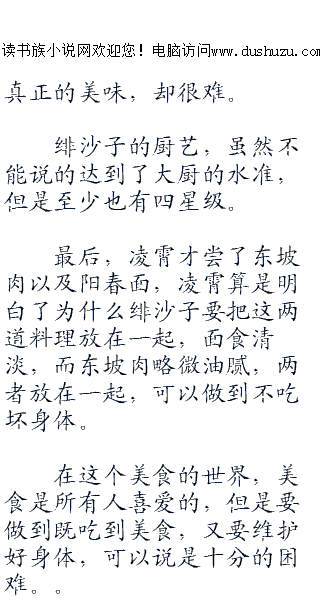 读书族小说网欢迎您！电脑访问www.dushuzu.com
真正的美味，却很难。
绯沙子的厨艺，虽然不
能说的达到了大厨的水准，
但是至少也有四星级。
最后，凌霄才尝了东坡
肉以及阳春面，凌霄算是明
白了为什么绯沙子要把这两
道料理放在一起，面食清
淡，而东坡肉略微油腻，两
者放在一起，可以做到不吃
坏身体。
在这个美食的世界，美
食是所有人喜爱的，但是要
做到既吃到美食，又要维护
好身体，可以说是十分的困
难。。